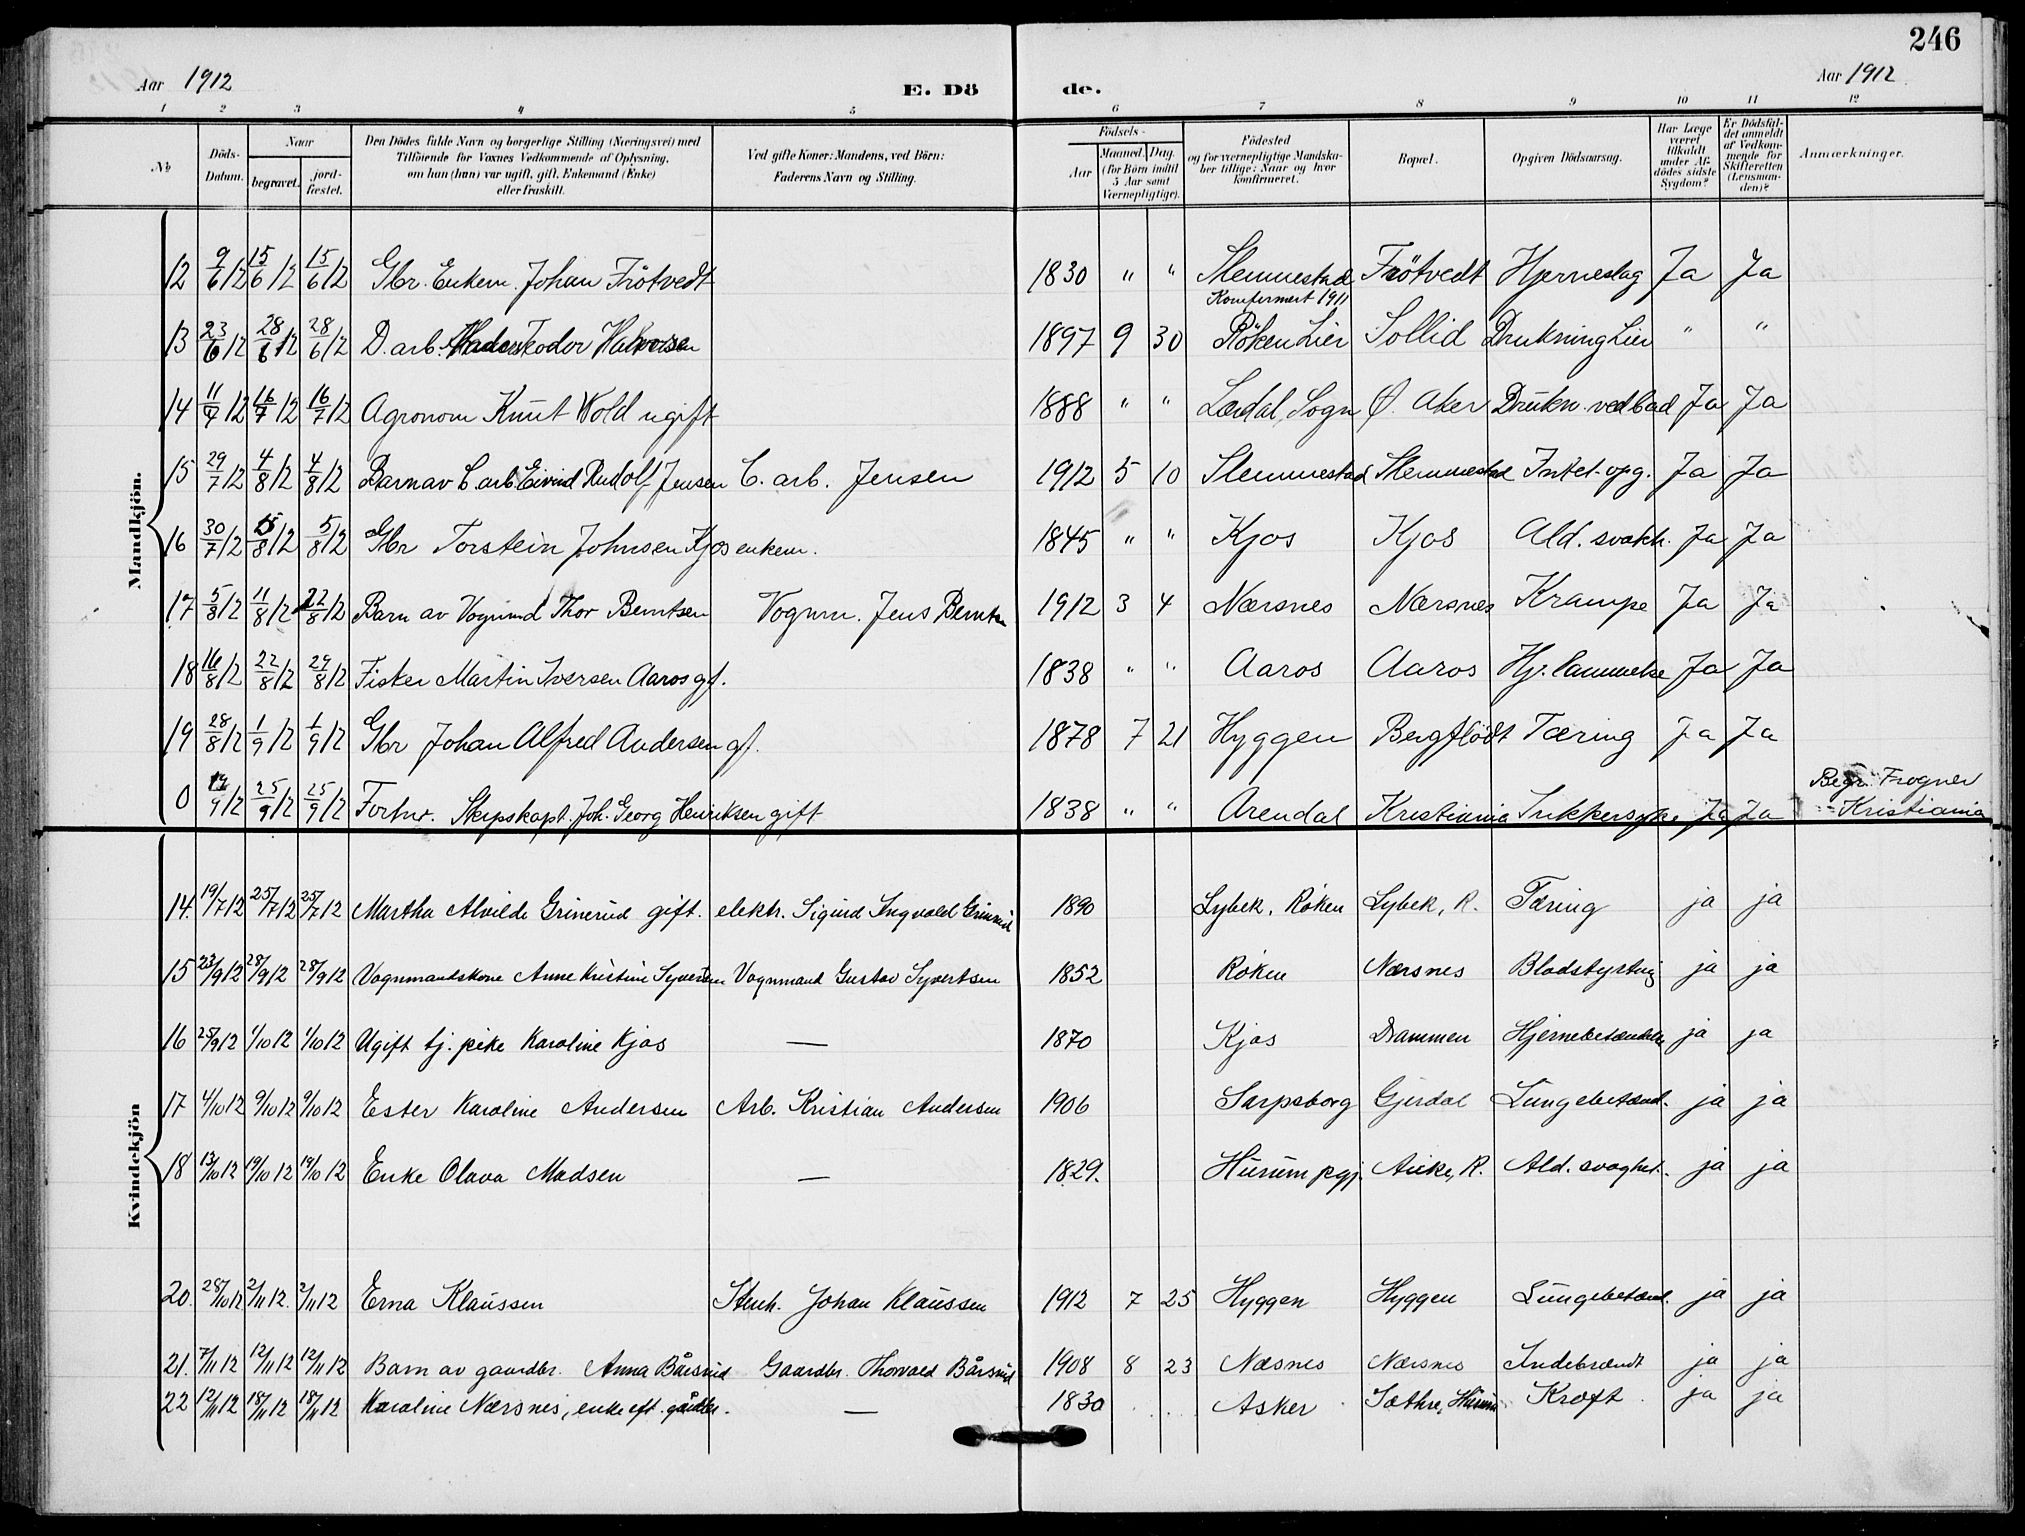 246
Aar 1912
E. Dö
de.
Aar 1912
1 2 3 4 5 6 7 8 9 10 11 12
No
Döds-Datum.
Naar
begravet.
jord-fæstet.
Den Dödes fulde Navn og borgerlige Stilling (Næringsvei) med
Tilföiende for Voxnes Vedkommende af Oplysning,
om han (hun) var ugift, gift, Enkemand (Enke)
eller fraskilt.
Ved gifte Koner: Mandens, ved Börn:
Faderens Navn og Stilling.
Födsels-
Aar
Maaned. Dag.
(for Börn indtil
5 Aar samt
Værnepligtige).
Födested
og for værnepligtige Mandska-
ber tillige: Naar og hvor
konfirmeret.
Bopæl.
Opgiven Dödsaarsag.
Har Læge
været
tilkaldt
under Af-
dödes sidste
Sygdom?
Er Dödsfal-
det anmeldt
af Vedkom-
mende for
Skifteretten
(Lensman-
den)?
Anmærkninger.
Mandkjön.
12 9/6 12 15/6 12 15/6 12 Gbr. Enkem. Johan Frötvedt 1830 " " Slemmestad Frötvedt Hjerneslag Ja Ja
Konfirmert 1911
13 23/6 12 28/6 12 28/6 12 D. arb. Halvorsen 1897 9 30 Röken Lier Sollid Drukning Lier " "
14 11/7 12 16/7 12 16/7 12 Agronom Knut Wold ugift 1888 " " Lærdal, Sogn Ø. Aker Drukn. ved bad Ja Ja
15 29/7 12 4/8 12 4/8 12 Barn av C. arb. Eivind Rudolf Jensen C. arb. Jensen 1912 5 10 Slemmestad Slemmestad Intet opg. Ja Ja
16 30/7 12 5/8 12 5/8 12 Gbr Torstein Johnsen Kjos enkem. 1845 " " Kjos Kjos Ald. svakh. Ja Ja
17 5/8 12 11/8 12 22/8 12 Barn av Vognmd Thor Berntsen Vognm. Jens Berntsn 1912 3 4 Nærsnes Nærsnes Krampe Ja Ja
18 16/8 12 22/8 12 29/8 12 Fisker Martin Iversen Aaros gf. 1838 " " Aaros Aaros Hj. lammelse Ja Ja
19 28/8 12 1/9 12 1/9 12 Gbr Johan Alfred Andersen gf. 1878 7 21 Hyggen Bergflödt Tæring Ja Ja
0 19/9 12 25/9 12 25/9 12 Fortw. Skipskapt. Joh. Georg Henriksen gift 1838 " " Arendal Kristiania Sukkersyke Ja Ja Begr. Frogner
Kristiania
Kvindekjön
14. 19/7 12 25/7 12 25/7 12 Martha Alvilde Grinerud gift. elektr. Sigurd Ingvald Grinerud 1890 Lybek, Röken Lybek, R. Tæring ja ja
15 23/9 12 28/9 12 28/9 12 Vognmandskone Anne Kristine Syvertsen Vognmand Gustav Syvertsen 1852 Röken Nærsnes Blodstyrtnig ja ja
16 25/9 12 1/10 12 1/10 12 Ugift tj. pike Karoline Kjos — 1870 Kjos Drammen Hjernebetændelse ja ja
17 4/10 12 9/10 12 9/10 12 Ester Karoline Andersen Arb. Kristian Andersen 1906 Sarpsborg Gjerdal Lungebetænd. ja ja
18 13/10 12 19/10 12 19/10 12 Enke Olava Madsen — 1829. Hurum pgj. Auke, R. Ald. svaghet. ja ja
20. 28/10 12 2/11 12. 2/11 12 Erna Klaussen Stenh. Johan Klaussen 1912 7 25 Hyggen Hyggen Lungebetænd. ja ja
21. 7/11 12 12/11 12 12/11 12 Barn av gaardbr. Anna Bårsrud Gaardbr. Thorvald Bårsrud 1908 8 23 Næsnes Nærsnes Indebrændt ja ja
22 12/11 12 18/11 12 18/11 12 Karoline Nærsnes, enke eft. gårdbr. — 1830 Asker Sæthre, Hurum Kræft. ja ja